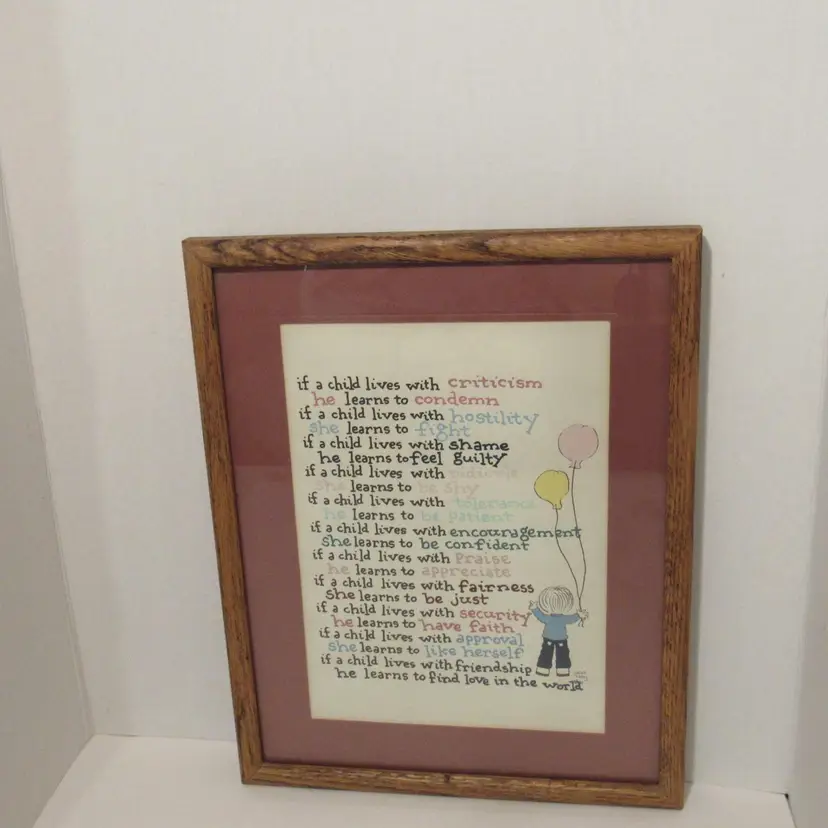 if a child lives with criticism
he learns to condemn
if a child lives with hostility
she learns to fight
if a child lives with shame
he learns to feel guilty
if a child lives with ridicule
she learns to be shy
if a child lives with tolerance
he learns to be patient
if a child lives with encouragement
she learns to be confident
if a child lives with Praise
he learns to appreciate
if a child lives with fairness
she learns to be just
if a child lives with security
he learns to have faith
if a child lives with approval
she learns to like herself
if a child lives with friendship
he learns to find love in the world